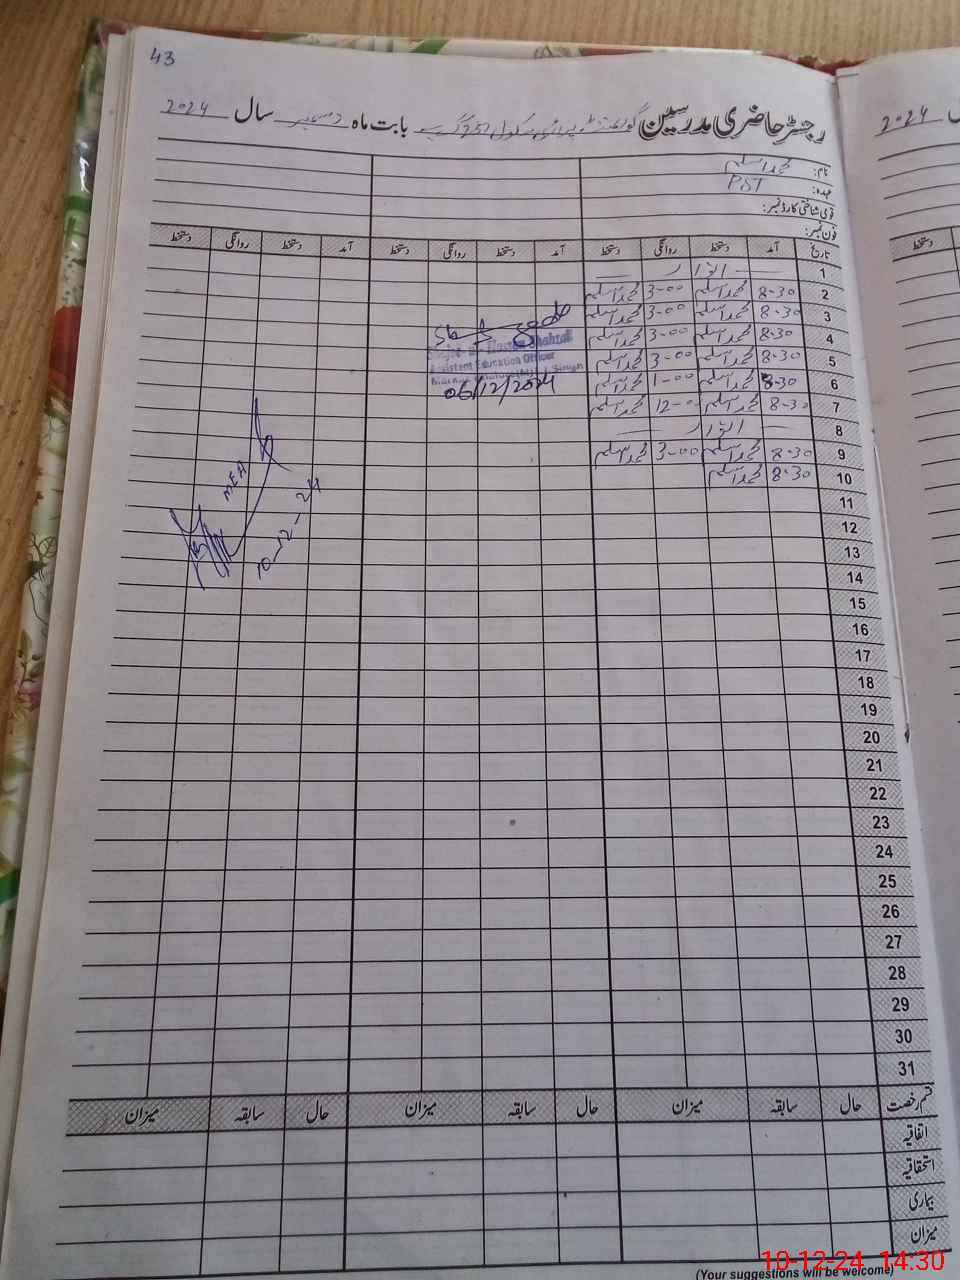 43
رجسٹر حاضری مدرسین گورنمنٹ پرائمری سکول بابت ماہ دسمبر سال 2024
2024
نام: محمد اسلم
عہدہ: PST
قومی شناختی کارڈ نمبر:
فون نمبر:
تاریخ آمد دستخط روانگی دستخط آمد دستخط روانگی دستخط آمد دستخط روانگی دستخط
دستخط
1 اتوار
2 8-30 محمد اسلم 3-00 محمد اسلم
3 8-30 محمد اسلم 3-00 محمد اسلم
4 8-30 محمد اسلم 3-00 محمد اسلم
5 8-30 محمد اسلم 3-00 محمد اسلم
6 8-30 محمد اسلم 1-00 محمد اسلم
7 8-30 محمد اسلم 12-00 محمد اسلم
8 اتوار
9 8-30 محمد اسلم 3-00 محمد اسلم
10 8-30 محمد اسلم
Assistant Education Officer
06/12/2024
MEA
10-12-24
11
12
13
14
15
16
17
18
19
20
21
22
23
24
25
26
27
28
29
30
31
قسم رخصت حال سابقہ میزان حال سابقہ میزان حال سابقہ میزان
اتفاقیہ
استحقاقیہ
بیماری
میزان
10-12-24 14:30
(Your suggestions will be welcome)